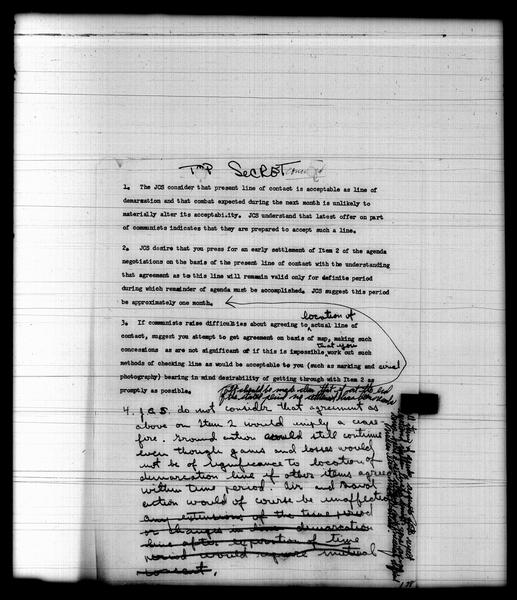 TOP SECRET
1. The JCS consider that present line of contact is acceptable as line of
demarcation and that combat expected during the next month is unlikely to
materially alter its acceptability. JCS understand that latest offer on part
of communists indicates that they are prepared to accept such a line.
2. JCS desire that you press for an early settlement of Item 2 of the agenda
negotiations on the basis of the present line of contact with the understanding
that agreement as to this line will remain valid only for definite period
during which remainder of agenda must be accomplished. JCS suggest this period
be approximately one month.
location of
3. If communists raise difficulties about agreeing to actual line of
contact, suggest you attempt to get agreement on basis of map, making such
that you
concessions as are not significant or if this is impossible work out such
methods of checking line as would be acceptable to you (such as marking and aerial
photography) bearing in mind desirability of getting through with Item 2 as
promptly as possible.
4. JCS do not consider that agreement as
above on Item 2 would imply a cease
fire. Ground action would still continue
even though gains and losses would
not be of significance to location of
demarcation line if other items agreed
within time period. Air and Naval
action would of course be unaffected
any extensions of the time period
or changes in line demarcation
line after expiration of time
period would require mutual
consent.